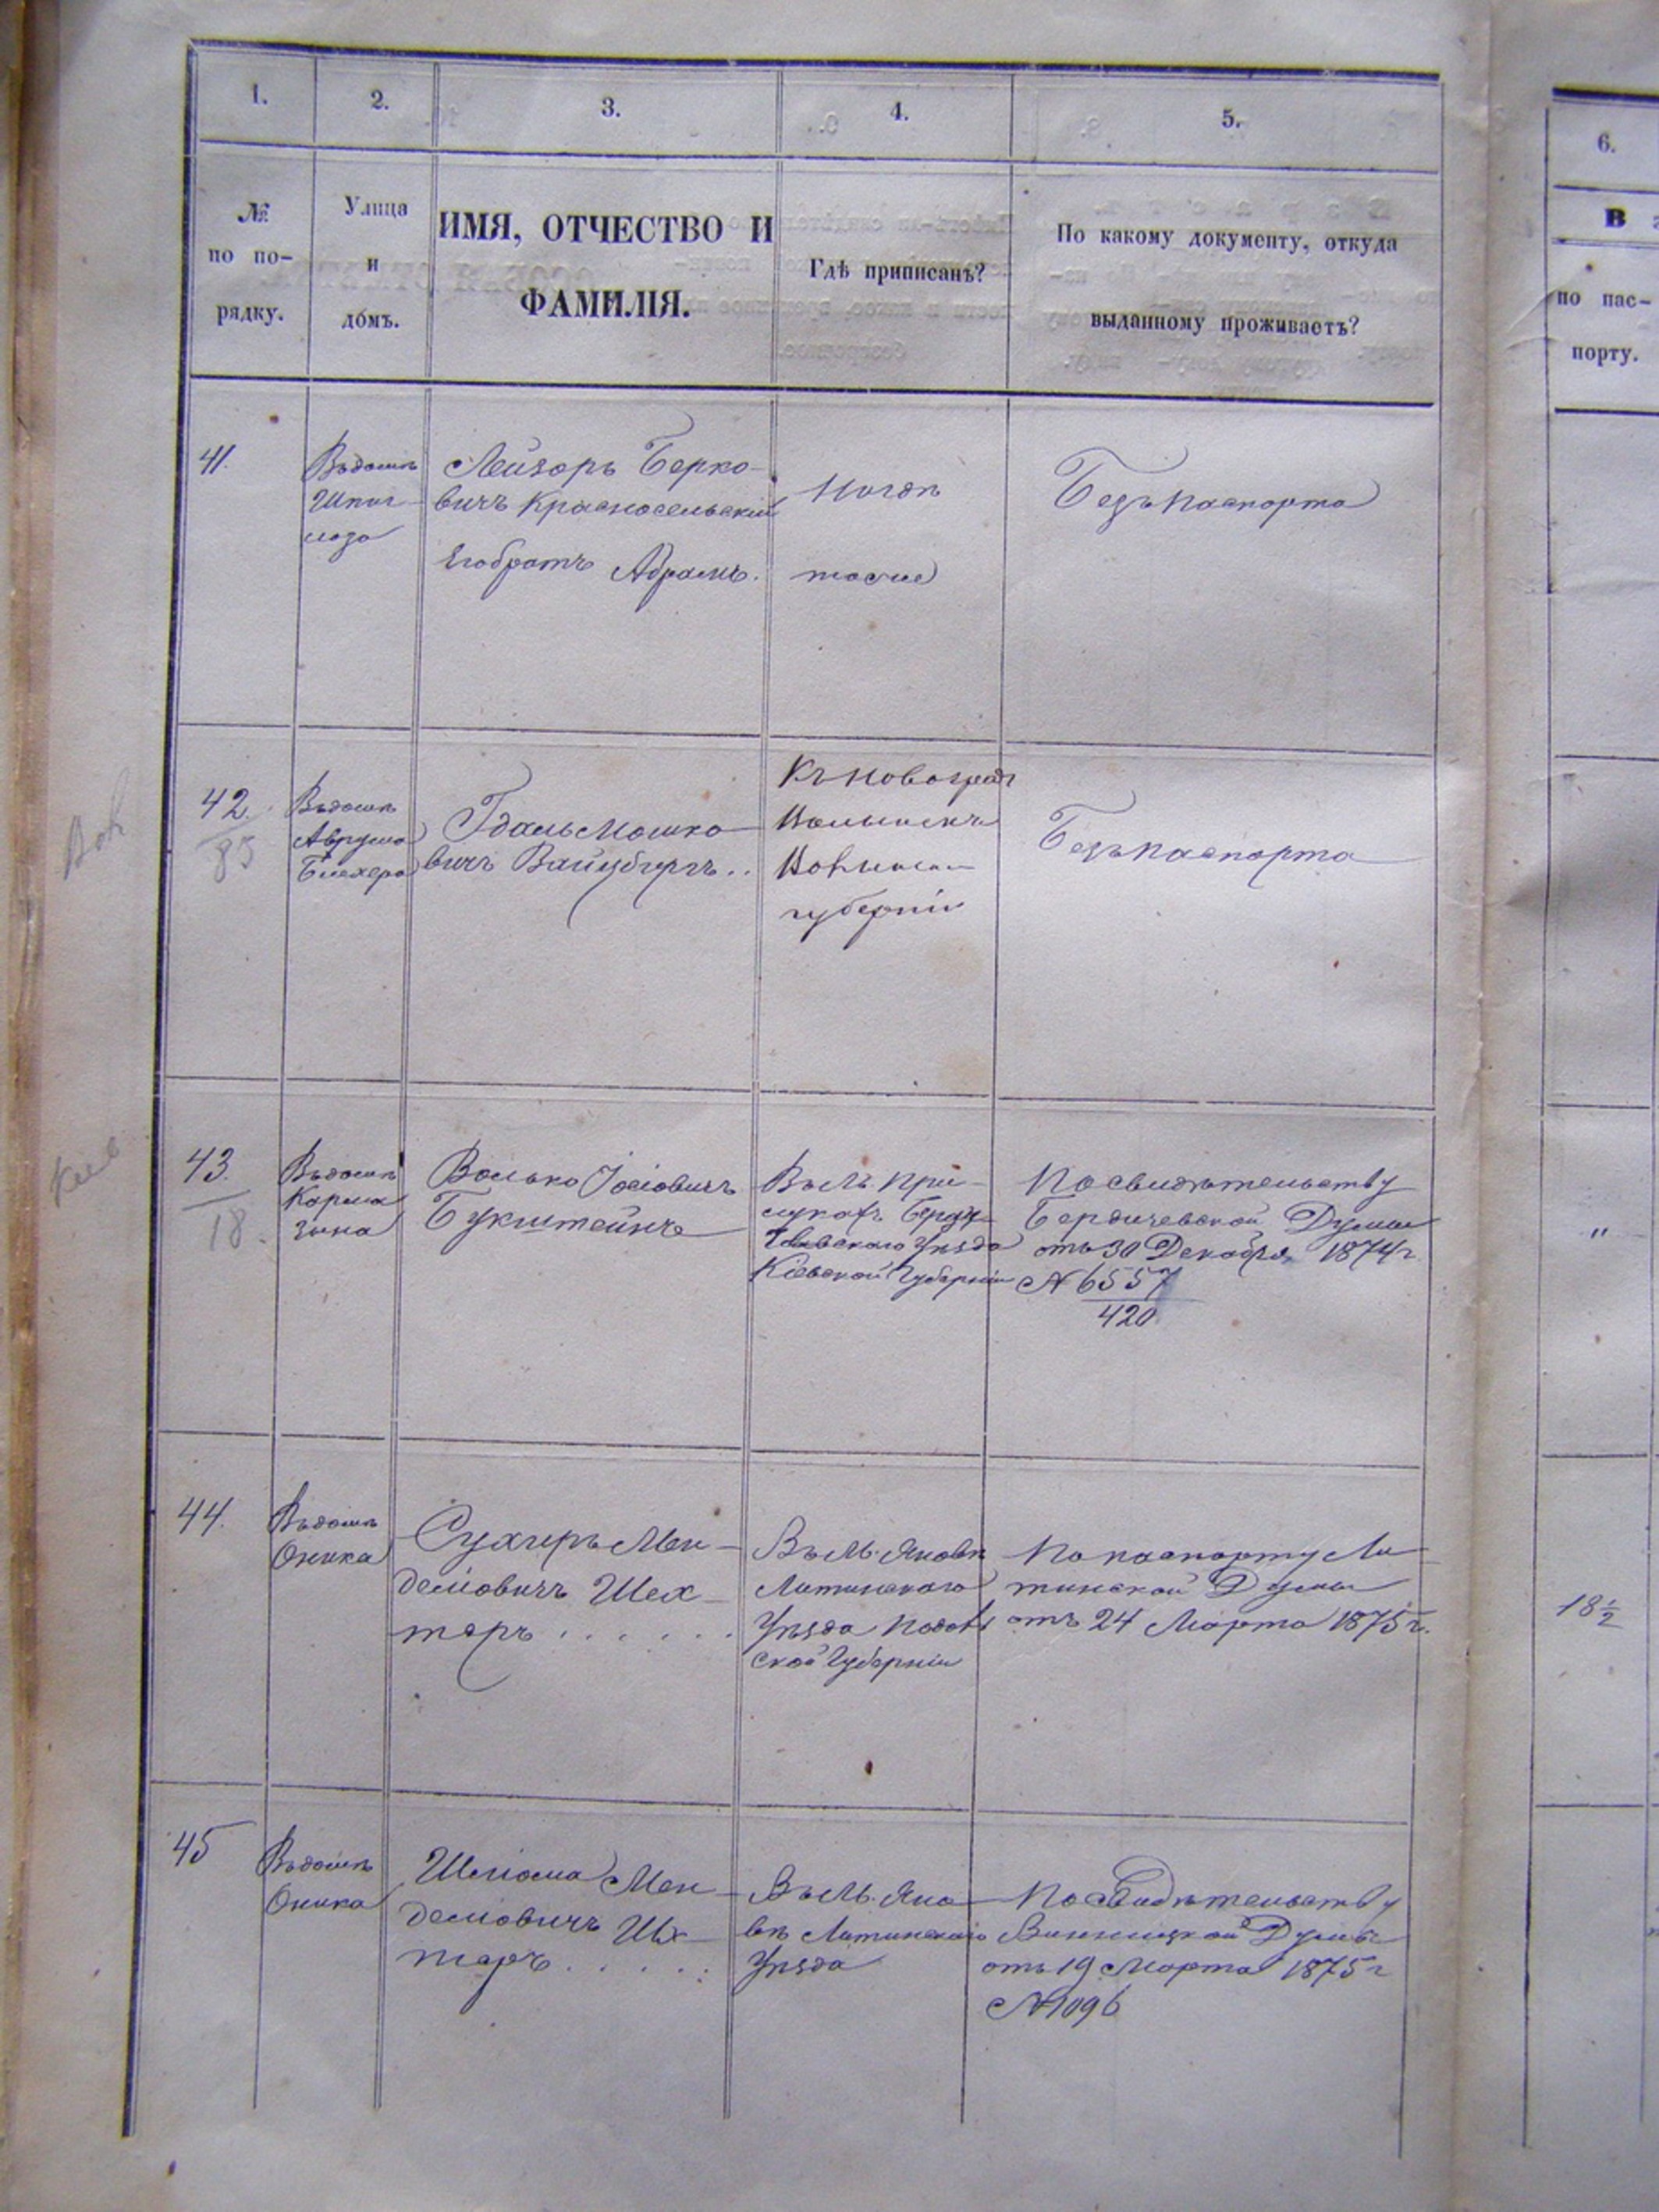 1.
2.
3.
4.
5.
6.
№
по по-
рядку.
Улица
и
домъ.
ИМЯ, ОТЧЕСТВО И
ФАМИЛІЯ.
Гдѣ приписанъ?
По какому документу, откуда
выданному проживаетъ?
В
по пас-
порту.
41.
Въ домѣ
Лейзоръ Берко-
вичъ Красносельскій
Его братъ Абрамъ.
Нигдѣ
тоже
Безъ паспорта
42.
85
Вол
Въ домѣ
Аврума
Блехера
Гдаль Мошко-
вичъ Вайцбургъ..
Къ Новоград
Волынскъ
Волынской
губерніи
Безъ паспорта
43.
18.
Кіев
Въ домѣ
Карма
зина
Волько Іосіовичъ
Букштейнъ
Въ м. При-
лукахъ Берди-
чевскаго Уѣзда
Кіевской Губерніи
По свидѣтельству
Бердичевской Думы
отъ 30 Декабря 1874 г.
№ 6557
420
44.
Въ домѣ
Оника
Сухеръ Мен-
деліовичъ Шех-
теръ......
Въ м. Яновѣ
Литинскаго
Уѣзда Подоль
ской Губерніи
По паспорту Ли-
тинской Думы
отъ 24 Марта 1875 г.
18 1/2
45
Въ домѣ
Оника
Шліома Мен-
деліовичъ Шх-
теръ.....
Въ м. Яно-
вѣ Литинскаго
Уѣзда
По свидѣтельству
Винницкой Думы
отъ 19 Марта 1875 г
№ 1096